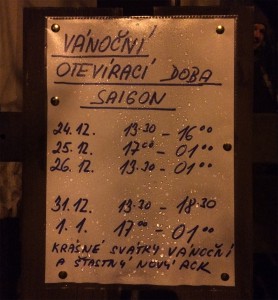 VÁNOČNÍ
OTEVÍRACÍ DOBA
SAIGON
24.12. 13.30 - 16⁰⁰
25.12. 17⁰⁰ - 01⁰⁰
26.12. 13.30 - 01⁰⁰
31.12. 13.30 - 18.30
1.1. 17⁰⁰ - 01⁰⁰
KRÁSNÉ SVÁTKY VÁNOČNÍ
A ŠŤASTNÝ NOVÝ ROK